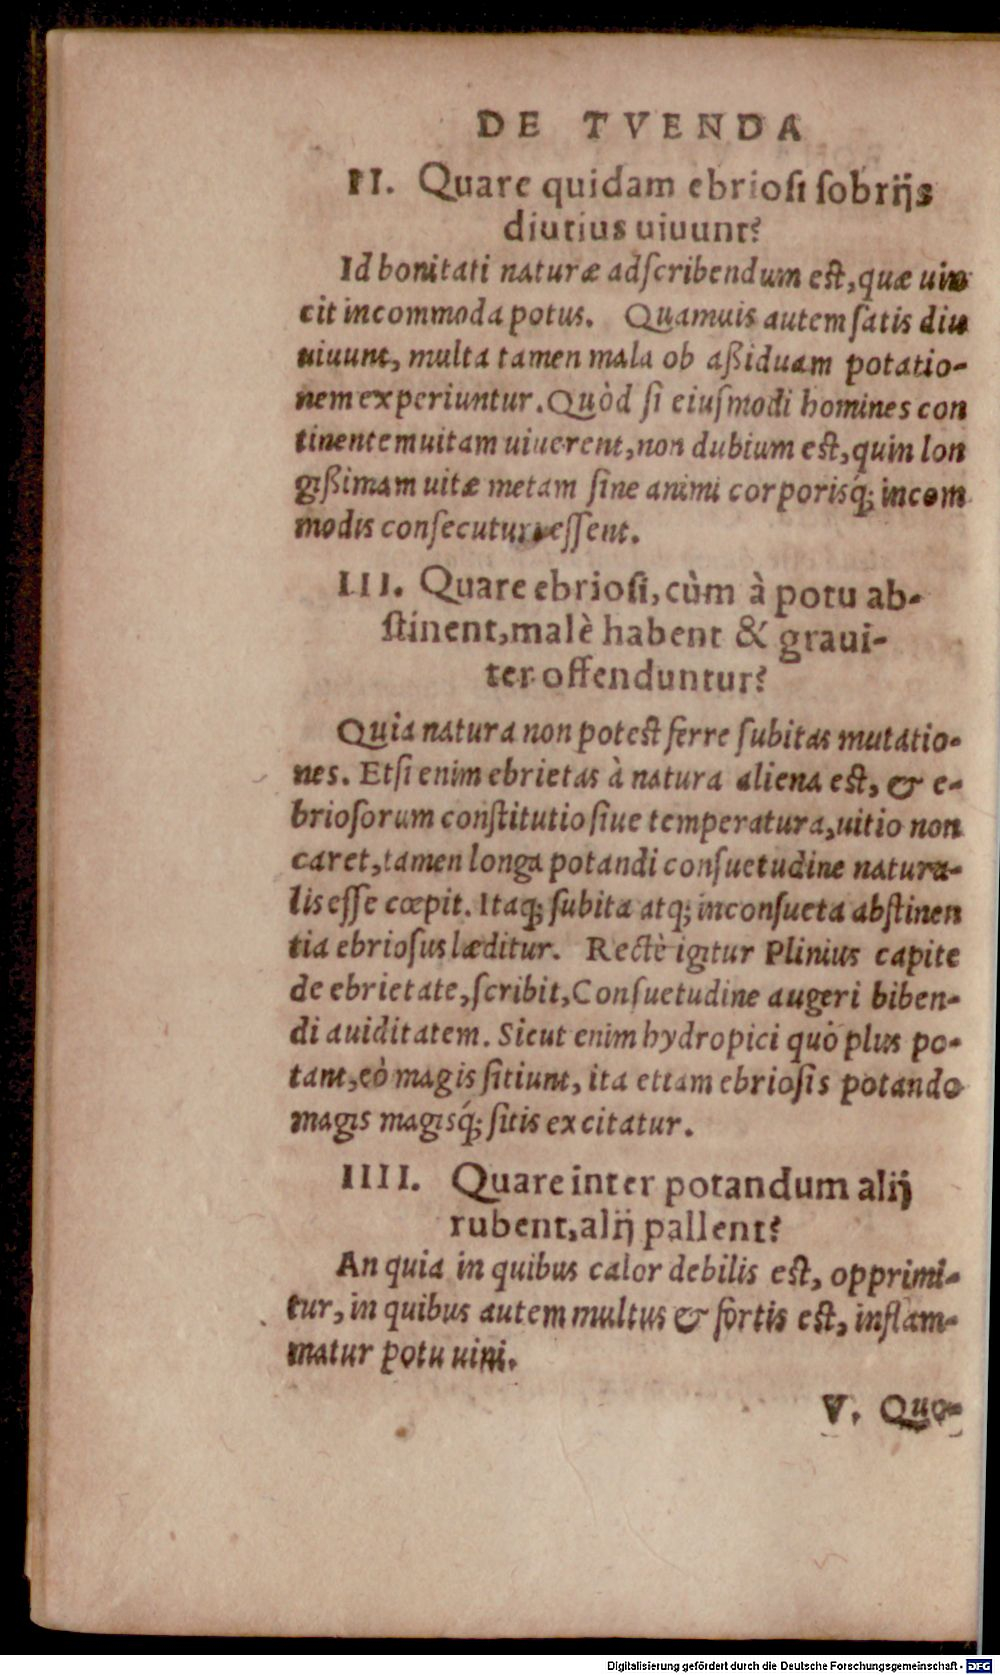 DE TVENDA
II. Quare quidam ebrioſi ſobrijs
diutius uiuunt?
Id bonitati naturæ adſcribendum est, quæ uin
cit incommoda potus. Quamuis autem ſatis diu
uiuunt, multa tamen mala ob aßiduam potatio-
nem experiuntur. Quòd ſi eiuſmodi homines con
tinentem uitam uiuerent, non dubium eſt, quin lon
gißimam uitæ metam ſine animi corporisq́; incom
modis conſecuturi eſſent.
III. Quare ebrioſi, cùm à potu ab-
ſtinent, malè habent & graui-
ter offenduntur?
Quia natura non poteſt ferre ſubitas mutatio-
nes. Etſi enim ebrietas à natura aliena eſt, & e-
brioſorum conſtitutio ſiue temperatura, uitio non
caret, tamen longa potandi conſuetudine natura-
lis eſſe cœpit. Itaq; ſubita atq; inconſueta abſtinen
tia ebrioſus læditur. Rectè igitur Plinius capite
de ebrietate, ſcribit, Conſuetudine augeri biben-
di auiditatem. Sicut enim hydropici quò plus po-
tant, eò magis ſitiunt, ita etiam ebrioſis potando
magis magisq́; ſitis excitatur.
IIII. Quare inter potandum alij
rubent, alij pallent?
An quia in quibus calor debilis eſt, opprimi-
tur, in quibus autem multus & fortis eſt, inflam-
matur potu uini.
V. Quo-
Digitalisierung gefördert durch die Deutsche Forschungsgemeinschaft - DFG